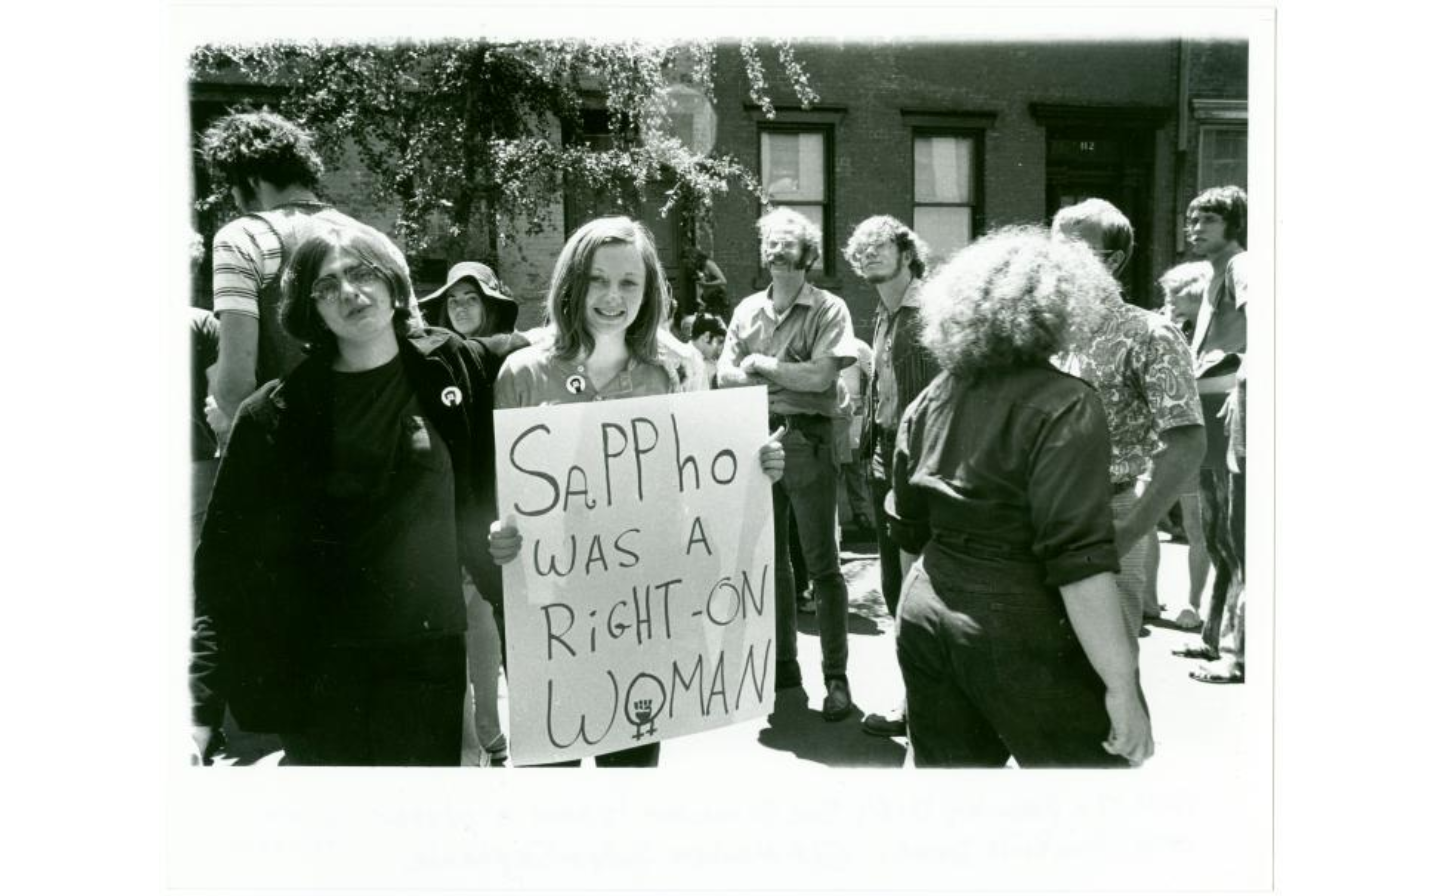 112
SaPPho
WAS A
RiGHT-ON
WOMAN